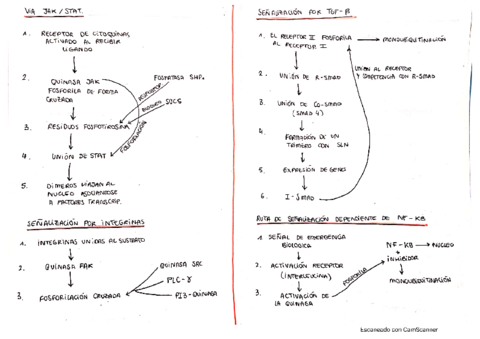 VIA JAK/STAT.
1. RECEPTOR DE CITOQUINAS
ACTIVADO AL RECIBIR
LIGANDO
2. QUINASA JAK
FOSFORILA DE FORMA
CRUZADA
FOSFATASA SHP.
SOCS
3. RESIDUOS FOSFOTIROSINA
FOSFORILACIÓN
4. UNIÓN DE STAT
5. DIMEROS VIAJAN AL
NUCLEO ASOCIANDOSE
A FACTORES TRANSCRIP.
SEÑALIZACIÓN POR INTEGRINAS
1. INTEGRINAS UNIDAS AL SUSTRATO
2. QUINASA FAK
3. FOSFORILACIÓN CRUZADA
QUINASA SRC
PLC-γ
PI3-QUINASA
SEÑALIZACIÓN POR TGF-β
1. EL RECEPTOR II FOSFORILA
AL RECEPTOR I
MONOUBIQUITINACIÓN
UNION AL RECEPTOR
Y COMPETENCIA CON R-SMAD
2. UNIÓN DE R-SMAD
3. UNIÓN DE CO-SMAD
(SMAD 4)
4. FORMACIÓN DE UN
TRIMERO CON SLN
5. EXPRESIÓN DE GENES
6. I-SMAD
RUTA DE SEÑALIZACIÓN DEPENDIENTE DE NF-KB
1 SEÑAL DE EMERGENCIA
BIOLOGICA
2. ACTIVACIÓN RECEPTOR
(INTERLEUCINA)
3. ACTIVACIÓN DE
LA QUINASA
FOSFORILA
NF-KB → NUCLEO
+
INHIBIDOR
MONOUBIQUITINACIÓN
Escaneado con CamScanner